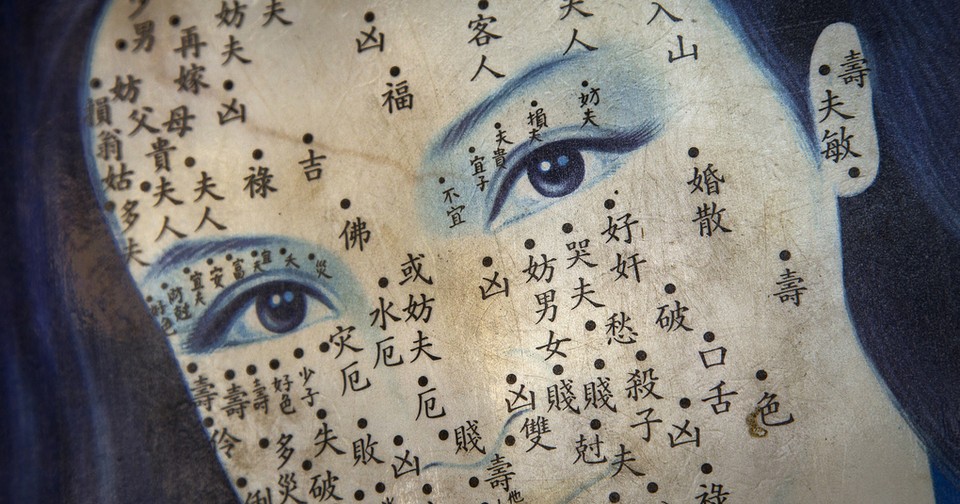 少男
妨夫
夫
凶
客人
夫人
入山
壽
夫敏
再嫁
凶
福
損翁
妨父母
姑
貴夫人
夫人
祿
吉
多夫
佛
妨夫
損夫
夫貴
宜子
不宜
婚散
好奸
哭夫
妨男女
凶
或妨夫
水厄
災
宜夫
安
富
灾厄
厄
愁
破
壽
口舌
色
殺子
賤
賤
凶
雙
壽
壽
壽
好色
少子
多災
失破
敗
凶
賤
壽
尅夫
凶
祿